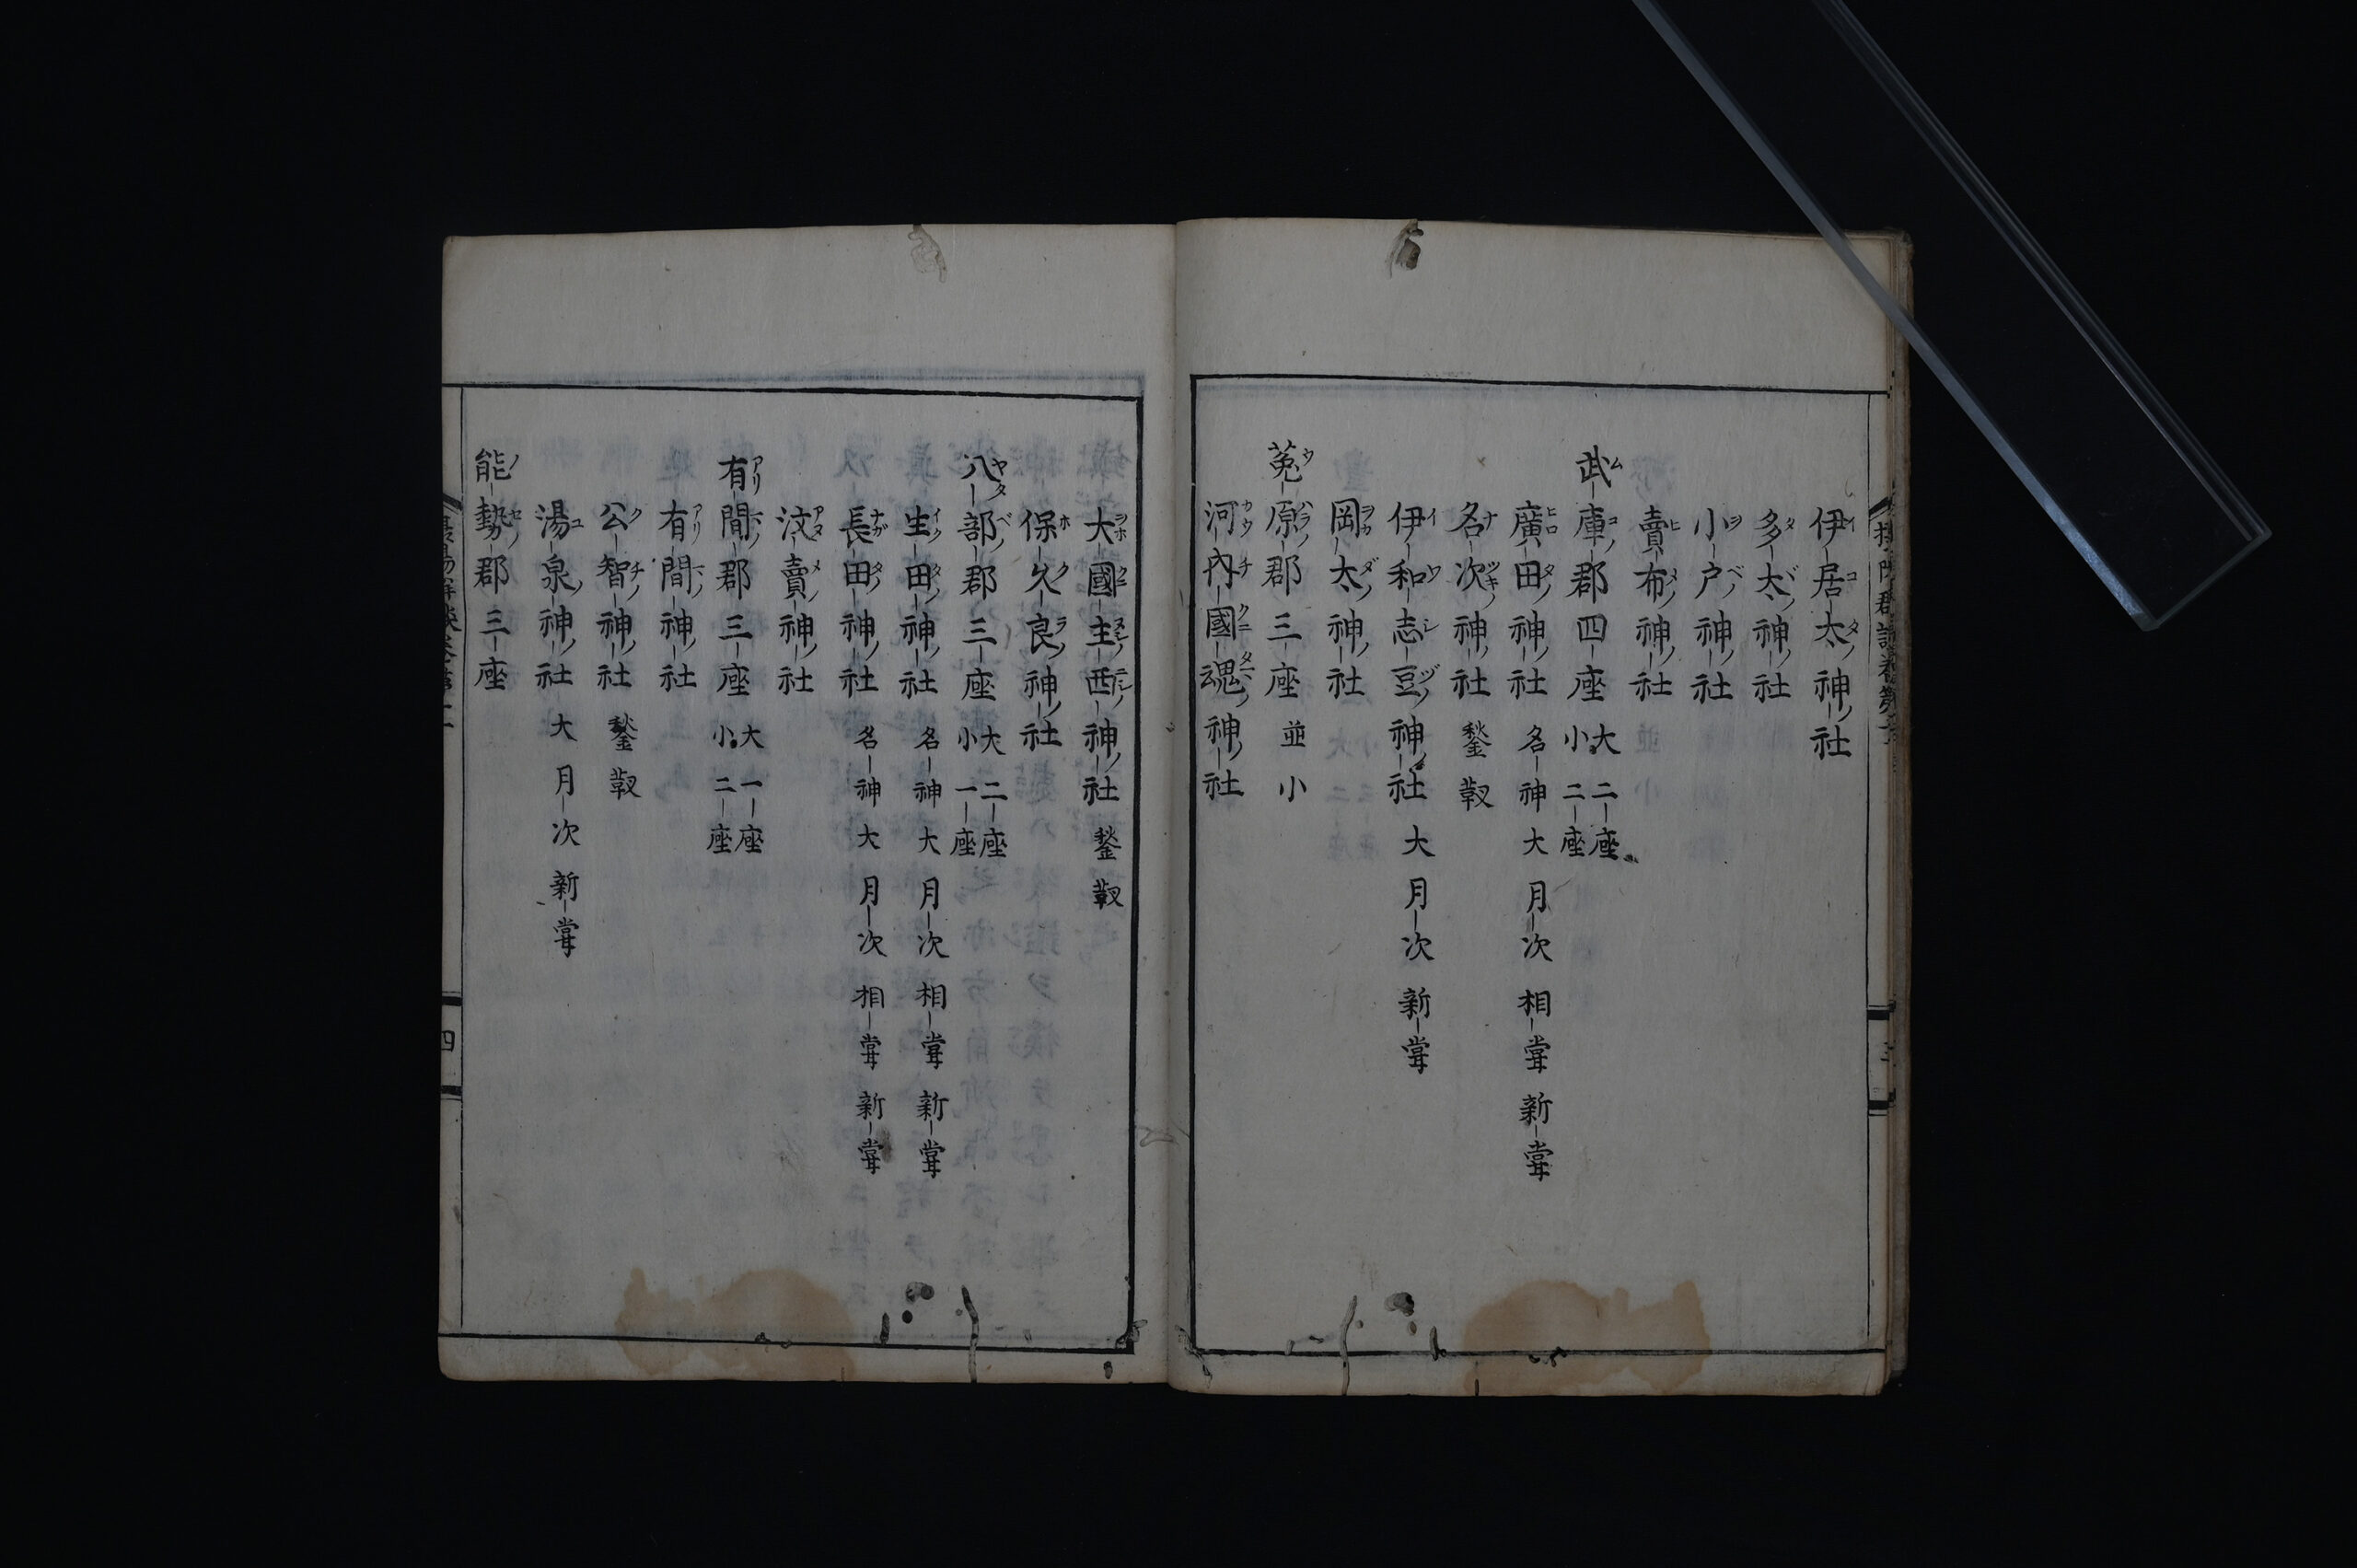 伊居太神社
多太神社
小戸神社
賣布神社
武庫郡四座 大二座 小二座
廣田神社 名神大 月次 相甞 新甞
名次神社 鍫靫
伊和志豆神社 大 月次 新甞
岡太神社
菟原郡三座 並小
河内國魂神社
大國主西神社 鍫靫
保久良神社
八部郡三座 大二座 小一座
生田神社 名神大 月次 相甞 新甞
長田神社 名神大 月次 相甞 新甞
汶賣神社
有間郡三座 大一座 小二座
有間神社
公智神社 鍫靫
湯泉神社 大 月次 新甞
能勢郡三座
四